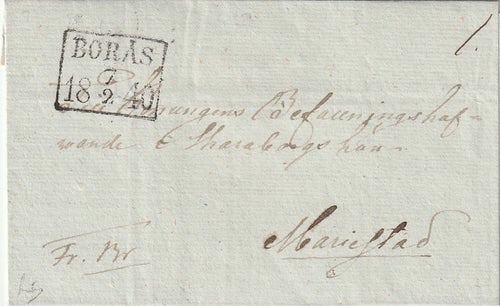 BORÅS
7
18 2 40
1.
Till Konungens Befallningshaf-
wande i Skaraborgs Län.
Mariestad
Fr. Br